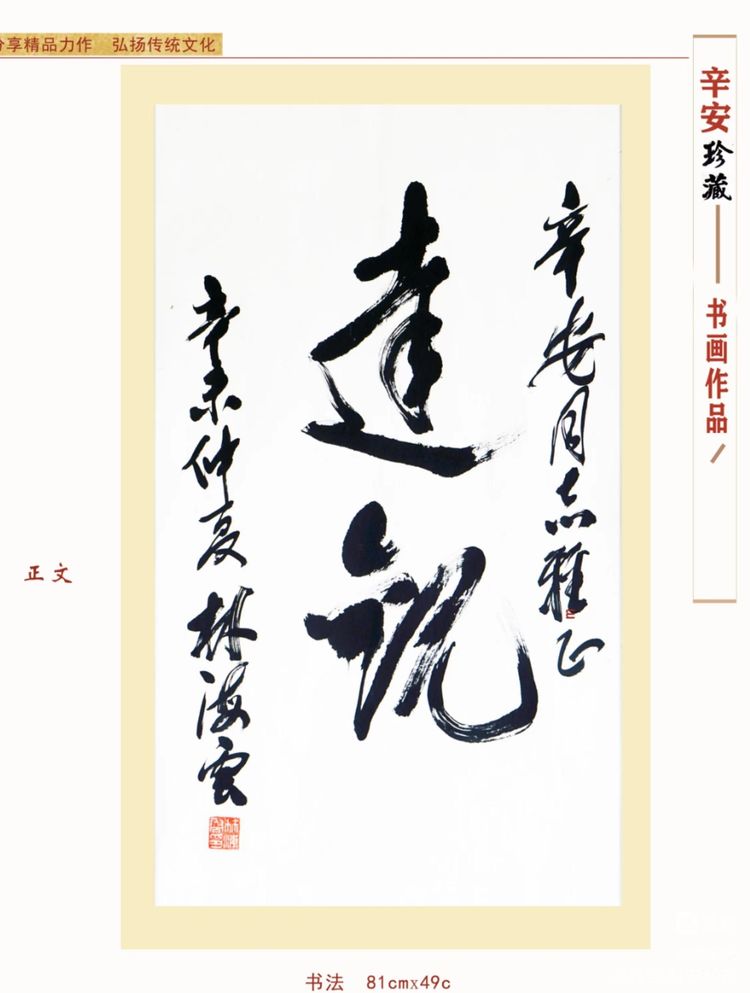 分享精品力作 弘扬传统文化
辛安珍藏——书画作品/
辛安同志雅正
达观
辛未仲夏 林海云
正文
书法 81cmx49c